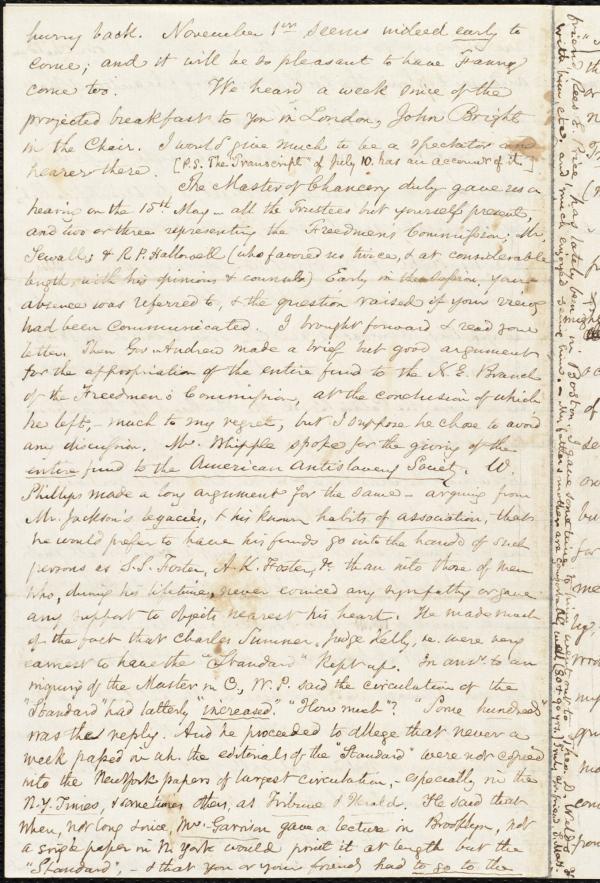 hurry back. November 1st seems indeed early to
come; and it will be so pleasant to have Fanny
come too. We heard a week since of the
projected breakfast to you in London, John Bright
in the Chair. I would give much to be a spectator and
hearer there. [P.S. The "Transcript" of July 10. has an account of it.]
The Master of Chancery duly gave us a
hearing on the 15th May – all the Trustees but yourself present,
and two or three representing the Freedmen's Commission; Mr.
Sewall, & R. P. Hallowell (who favored us twice, & at considerable
length, with his opinions & counsels) Early in the session your
absence was referred to, & the question raised if your views
had been communicated. I brought forward & read your
letter. Then Gov. Andrew made a brief but good argument
for the appropriation of the entire fund to the N. E. Branch
of the Freedmen's Commission, at the conclusion of which
he left, – much to my regret, but I suppose he chose to avoid
any discussion. Mr. Whipple spoke for the giving of the
entire fund to the American Antislavery Society. W.
Phillips made a long argument for the same – arguing from
Mr. Jackson's legacies, & his known habits of association, that
he would prefer to have his funds go into the hands of such
persons as S. S. Foster, A. K. Foster, &c than into those of men
who, during his lifetime, never evinced any sympathy or gave
any support to objects nearest his heart. He made much
of the fact that Charles Sumner, Judge Kelly, &c. were very
earnest to have the "Standard" kept up. In ansr. to an
inquiry of the Master in C., W. P. said the circulation of the
"Standard" had latterly "increased". "How much"? "Some hundreds"
was the reply. And he proceeded to allege that never a
week passed in wh. the editorials of the "Standard" were not copied
into the New York papers of largest circulation, – especially in the
N. Y. Times, & sometimes others, as Tribune & Herald. He said that
when, not long since, Mr. Garrison gave a lecture in Brooklyn, not
a single paper in N. York would print it at length but the
"Standard", – & that you or your friends had to go to the
has lately been in Boston. I gave something to
with him, &c., and much enjoyed seeing him. – My